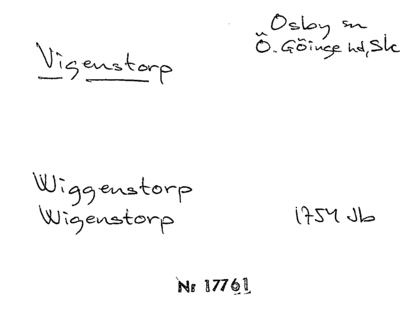 Osby sn
Vigenstorp
Ö. Göinge hd, Sk
Wiggenstorp
Wigenstorp 1754 Jb
Nr 17761